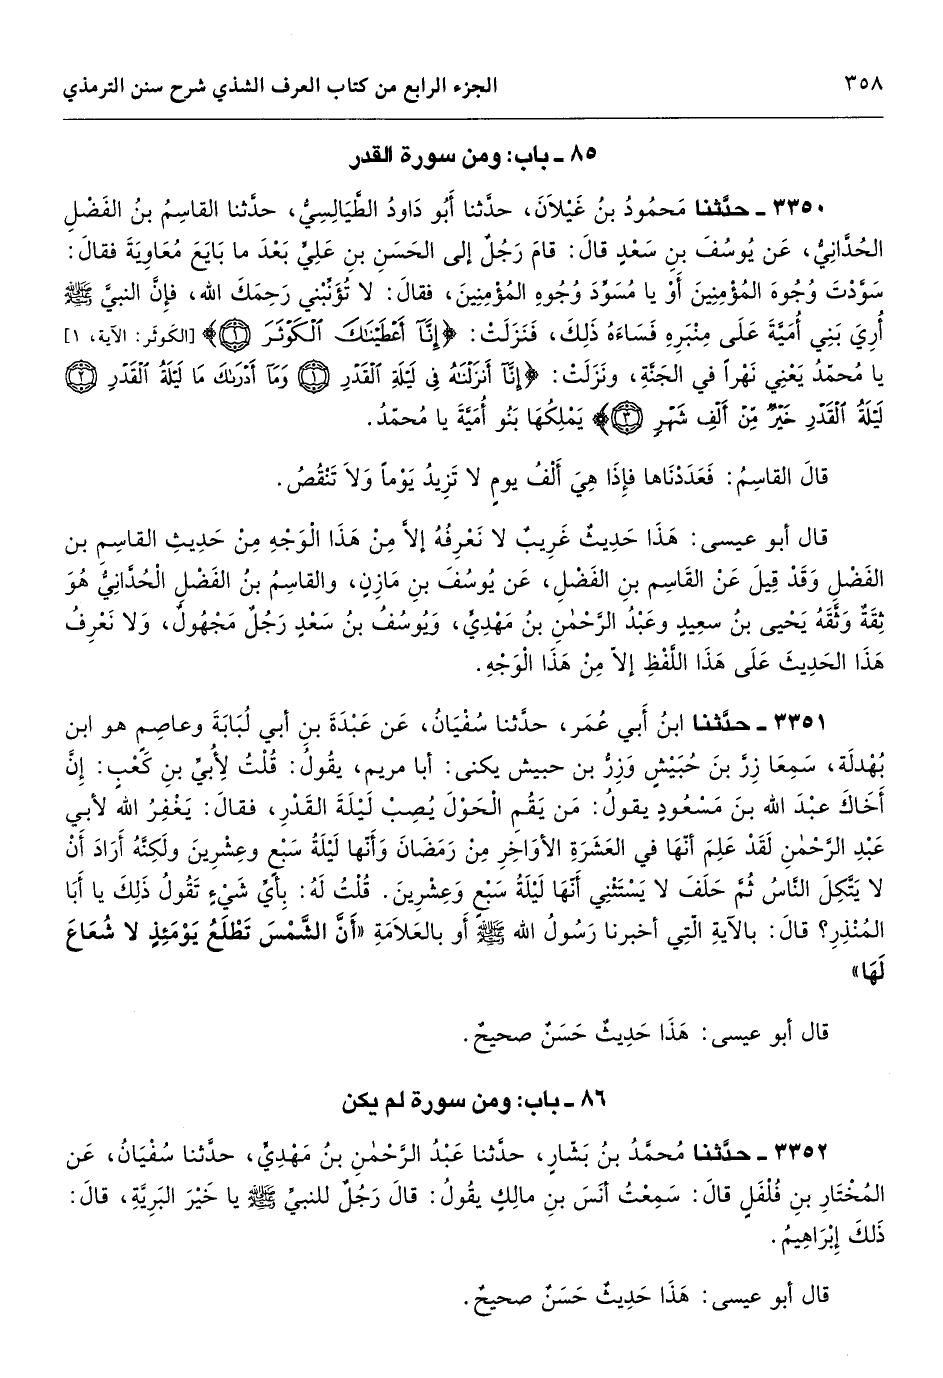 ٣٥٨ الجزء الرابع من كتاب العرف الشذي شرح سنن الترمذي
٨٥ ـ باب: ومن سورة القدر
٣٣٥٠ ـ حدَّثنا مَحمُودُ بنُ غَيْلاَنَ، حدَّثنا أَبُو دَاودُ الطَّيَالِسِيُّ، حدَّثنا القاسِمُ بنُ الفَضْلِ
الحُدَّانِيُّ، عَن يُوسُفَ بنِ سَعْدٍ قالَ: قامَ رَجُلٌ إلى الحَسَنِ بنِ عَلِيٍّ بَعْدَ ما بَايَعَ مُعَاوِيَةَ فقالَ:
سَوَّدْتَ وُجُوهَ المُؤْمِنِينَ أَوْ يا مُسَوِّدَ وُجُوهِ المُؤْمِنِينَ، فقالَ: لا تُؤَنِّبْنِي رَحِمَكَ الله، فإنَّ النبيَّ ﷺ
أُرِيَ بَنِي أُمَيَّةَ عَلَى مِنْبَرِهِ فَسَاءَهُ ذَلِكَ، فَنَزَلَتْ: ﴿إِنَّآ أَعْطَيْنَٰكَ ٱلْكَوْثَرَ ۝١﴾ [الكوثر: الآية، ١]
يا مُحمّدُ يَعْنِي نَهْراً في الجَنَّةِ، ونَزَلَتْ: ﴿إِنَّآ أَنزَلْنَٰهُ فِى لَيْلَةِ ٱلْقَدْرِ ۝١ وَمَآ أَدْرَىٰكَ مَا لَيْلَةُ ٱلْقَدْرِ ۝٢
لَيْلَةُ ٱلْقَدْرِ خَيْرٌ مِّنْ أَلْفِ شَهْرٍ ۝٣﴾ يَمْلِكُهَا بَنُو أُمَيَّةَ يا مُحمّدُ.
قالَ القاسِمُ: فَعَدَدْنَاها فإِذَا هِيَ أَلْفُ يومٍ لا تَزِيدُ يَوْماً وَلاَ تَنْقُصُ.
قال أبو عيسى: هَذَا حَدِيثٌ غَرِيبٌ لا نَعْرِفُهُ إلاَّ مِنْ هَذَا الْوَجْهِ مِنْ حَدِيثِ القاسِمِ بن
الفَضْلِ وَقَدْ قِيلَ عَنْ القَاسِمِ بنِ الفَضْلِ، عَن يُوسُفَ بنِ مَازِنٍ، والقاسِمُ بنُ الفَضْلِ الْحُدَّانِيُّ هُوَ
ثِقَةٌ وَثَّقَهُ يَحْيى بنُ سعِيدٍ وعَبْدُ الرَّحْمٰنِ بنُ مَهْدِيٍّ، وَيُوسُفُ بنُ سَعْدٍ رَجُلٌ مَجْهُولٌ، وَلا نَعْرِفُ
هَذَا الحَدِيثَ عَلَى هَذَا اللَّفْظِ إلاّ مِنْ هَذَا الْوَجْهِ.
٣٣٥١ ـ حدَّثنا ابنُ أَبي عُمَر، حدَّثنا سُفْيَانُ، عَن عَبْدَةَ بنِ أبي لُبَابَةَ وعاصِمٍ هو ابن
بُهْدلَة، سَمِعَا زِرَّ بنَ حُبَيْشٍ وَزِرُّ بن حبيش يكنى: أبا مريم، يقُولُ: قُلْتُ لِأُبَيِّ بنِ كَعْبٍ: إنَّ
أَخَاكَ عبْدَ الله بنَ مَسْعُودٍ يقولُ: مَن يَقُمِ الْحَوْلَ يُصِبْ لَيْلَةَ القَدْرِ، فقالَ: يَغْفِرُ الله لأبي
عَبْدِ الرَّحْمٰنِ لَقَدْ عَلِمَ أنّهَا في العَشَرَةِ الأوَاخِرِ مِنْ رَمَضَانَ وَأَنّها لَيْلَةُ سَبْعٍ وعِشْرِينَ ولكِنَّهُ أَرَادَ أَنْ
لا يَتَّكِلَ النَّاسُ ثُمَّ حَلَفَ لا يَسْتَثْنِي أنّهَا لَيْلَةُ سَبْعٍ وَعِشْرِينَ. قُلْتُ لَهُ: بِأَيِّ شَيْءٍ تَقُولُ ذَلِكَ يا أَبَا
المُنْذِرِ؟ قالَ: بالآيَةِ الّتِي أخبرنا رَسُولُ الله ﷺ أَو بالعَلاَمَةِ «أَنَّ الشَّمْسَ تَطْلَعُ يَوْمَئِذٍ لا شُعَاعَ
لَهَا»
قال أبو عيسى: هَذَا حَدِيثٌ حَسَنٌ صحيحٌ.
٨٦ ـ باب: ومن سورة لم يكن
٣٣٥٢ ـ حدَّثنا مُحمَّدُ بنُ بَشّارٍ، حدَّثنا عَبْدُ الرَّحْمٰنِ بنُ مَهْدِيٍّ، حدَّثنا سُفْيَانُ، عَن
المُخْتَارِ بنِ فُلْفَلٍ قالَ: سَمِعْتُ أنَسَ بن مالِكٍ يقُولُ: قالَ رَجُلٌ للنبيِّ ﷺ يا خَيْرَ البَرِيَّةِ، قالَ:
ذَلكَ إبْرَاهِيمُ.
قال أبو عيسى: هَذَا حَدِيثٌ حَسَنٌ صحيحٌ.